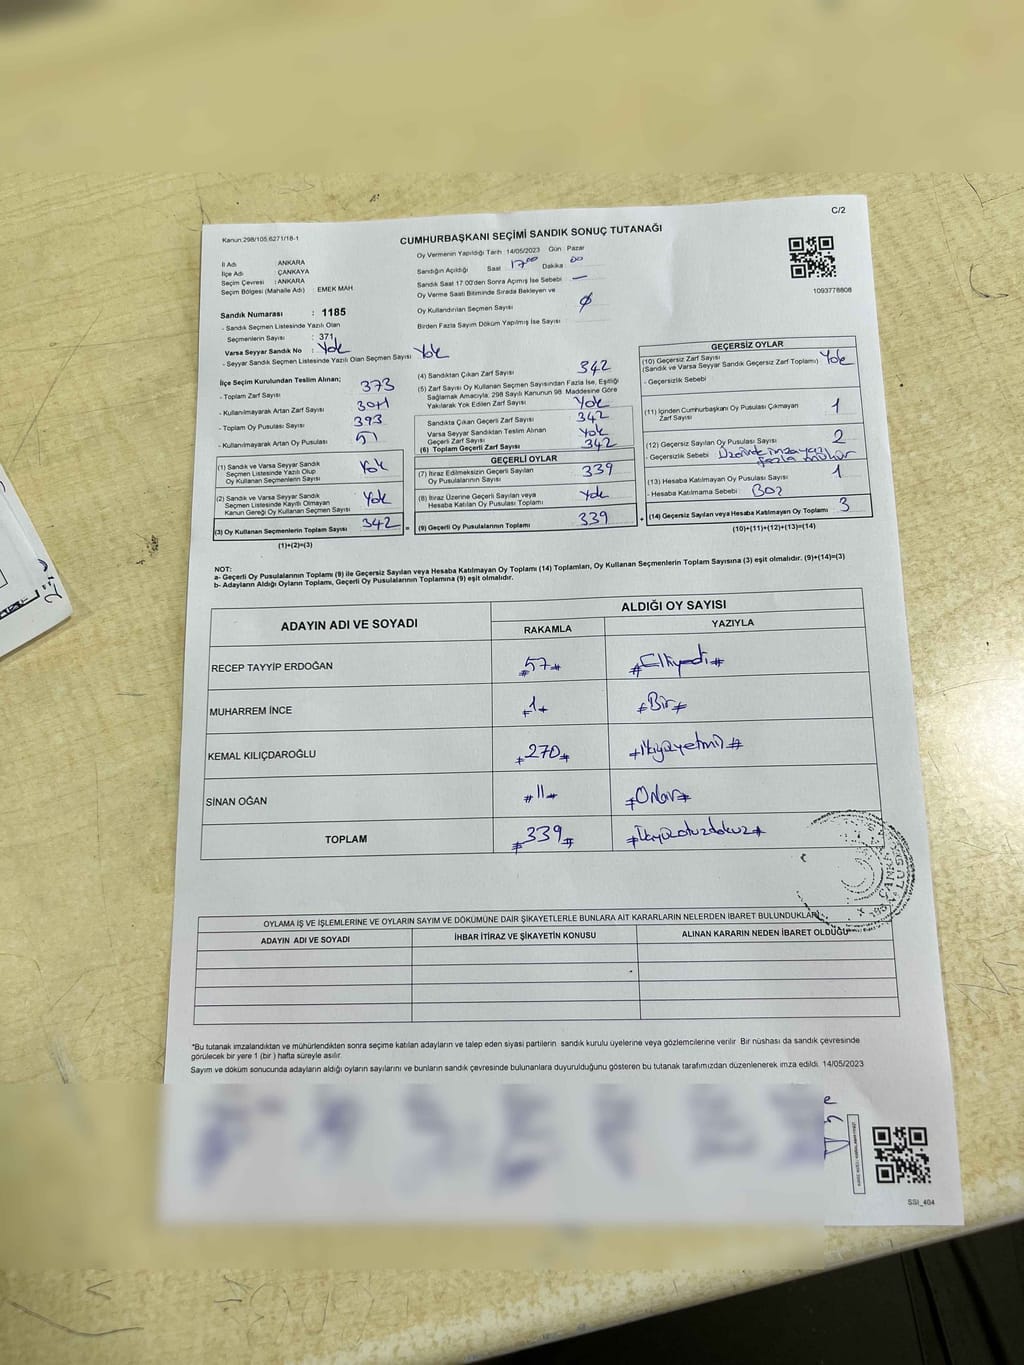 C/2
Kanun:298/105,6271/18-1
CUMHURBAŞKANI SEÇİMİ SANDIK SONUÇ TUTANAĞI
1093778808
İl Adı : ANKARA
İlçe Adı : ÇANKAYA
Seçim Çevresi : ANKARA
Seçim Bölgesi (Mahalle Adı) : EMEK MAH
Sandık Numarası : 1185
- Sandık Seçmen Listesinde Yazılı Olan
Seçmenlerin Sayısı : 371
Varsa Seyyar Sandık No : Yok
- Seyyar Sandık Seçmen Listesinde Yazılı Olan Seçmen Sayısı Yok
Oy Vermenin Yapıldığı Tarih 14/05/2023 Gün : Pazar
Sandığın Açıldığı Saat 17 00 Dakika 00
Sandık Saat 17:00'den Sonra Açımış İse Sebebi —
Oy Verme Saati Bitiminde Sırada Bekleyen ve
Oy Kullandırılan Seçmen Sayısı ø
Birden Fazla Sayım Döküm Yapılmış İse Sayısı
İlçe Seçim Kurulundan Teslim Alınan;
- Toplam Zarf Sayısı 373
- Kullanılmayarak Artan Zarf Sayısı
- Toplam Oy Pusulası Sayısı 393
- Kullanılmayarak Artan Oy Pusulası 51
(1) Sandık ve Varsa Seyyar Sandık
Seçmen Listesinde Yazılı Olup
Oy Kullanan Seçmenlerin Sayısı Yok
(2) Sandık ve Varsa Seyyar Sandık
Seçmen Listesinde Kayıtlı Olmayan
Kanun Gereği Oy Kullanan Seçmen Sayısı Yok
(3) Oy Kullanan Seçmenlerin Toplam Sayısı 342 =
(1)+(2)=(3)
(4) Sandıktan Çıkan Zarf Sayısı 342
(5) Zarf Sayısı Oy Kullanan Seçmen Sayısından Fazla İse, Eşitliği
Sağlamak Amacıyla; 298 Sayılı Kanunun 98. Maddesine Göre
Yakılarak Yok Edilen Zarf Sayısı Yok
Sandıkta Çıkan Geçerli Zarf Sayısı 342
Varsa Seyyar Sandıktan Teslim Alınan
Geçerli Zarf Sayısı Yok
(6) Toplam Geçerli Zarf Sayısı 342
GEÇERLİ OYLAR
(7) İtiraz Edilmeksizin Geçerli Sayılan
Oy Pusulasının Sayısı 339
(8) İtiraz Üzerine Geçerli Sayılan veya
Hesaba Katılan Oy Pusulası Toplamı Yok
(9) Geçerli Oy Pusulalarının Toplamı 339 +
GEÇERSİZ OYLAR
(10) Geçersiz Zarf Sayısı
(Sandık ve Varsa Seyyar Sandık Geçersiz Zarf Toplamı) Yok
- Geçersizlik Sebebi
(11) İçinden Cumhurbaşkanı Oy Pusulası Çıkmayan
Zarf Sayısı 1
(12) Geçersiz Sayılan Oy Pusulası Sayısı 2
- Geçersizlik Sebebi Üzerinde imza yan
fazla mühür
(13) Hesaba Katılmayan Oy Pusulası Sayısı 1
- Hesaba Katılmama Sebebi : Boş
(14) Geçersiz Sayılan veya Hesaba Katılmayan Oy Toplamı 3
(10)+(11)+(12)+(13)=(14)
NOT:
a- Geçerli Oy Pusulalarının Toplamı (9) ile Geçersiz Sayılan veya Hesaba Katılmayan Oy Toplamı (14) Toplamları, Oy Kullanan Seçmenlerin Toplam Sayısına (3) eşit olmalıdır. (9)+(14)=(3)
b- Adayların Aldığı Oyların Toplamı, Geçerli Oy Pusulalarının Toplamına (9) eşit olmalıdır.
ADAYIN ADI VE SOYADI
ALDIĞI OY SAYISI
RAKAMLA YAZIYLA
RECEP TAYYİP ERDOĞAN #57# #Elliyedi#
MUHARREM İNCE #1# #Bir#
KEMAL KILIÇDAROĞLU #270# #İkiyüzyetmiş#
SİNAN OĞAN #11# #Onbir#
TOPLAM #339# #Üçyüzotuzdokuz#
OYLAMA İŞ VE İŞLEMLERİNE VE OYLARIN SAYIM VE DÖKÜMÜNE DAİR ŞİKAYETLERLE BUNLARA AİT KARARLARIN NELERDEN İBARET BULUNDUKLARI
ADAYIN ADI VE SOYADI İHBAR İTİRAZ VE ŞİKAYETİN KONUSU ALINAN KARARIN NEDEN İBARET OLDUĞU
*Bu tutanak imzalandıktan ve mühürlendikten sonra seçime katılan adayların ve talep eden siyasi partilerin sandık kurulu üyelerine veya gözlemcilerine verilir. Bir nüshası da sandık çevresinde
görülecek bir yere 1 (bir) hafta süreyle asılır.
Sayım ve döküm sonucunda adayların aldığı oyların sayılarını ve bunların sandık çevresinde bulunanlara duyurulduğunu gösteren bu tutanak tarafımızdan düzenlenerek imza edildi. 14/05/2023
SSI_404